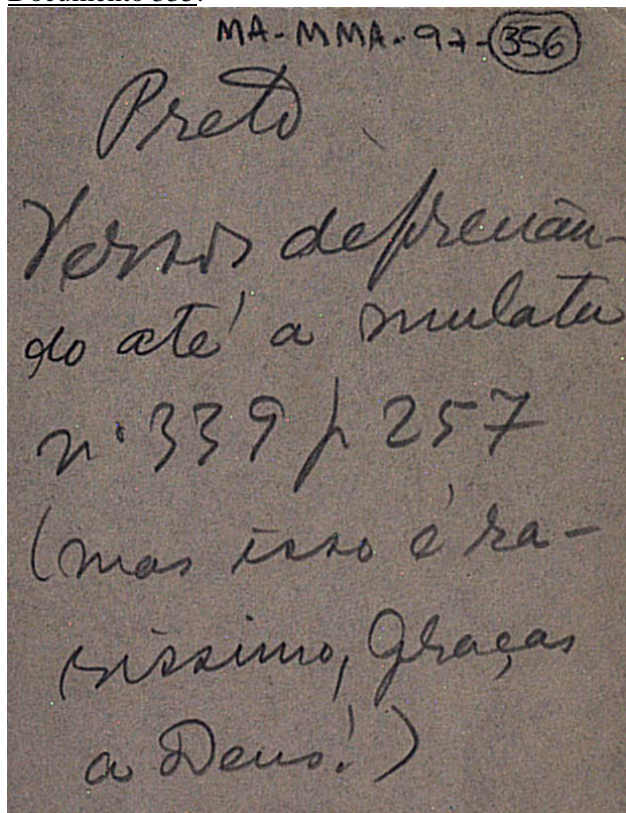 MA-MMA-97-356
Preto
Versos depreciân-
do até a mulata
nº 339 p 257
(mas isso é ra-
ríssimo, Graças
a Deus!)